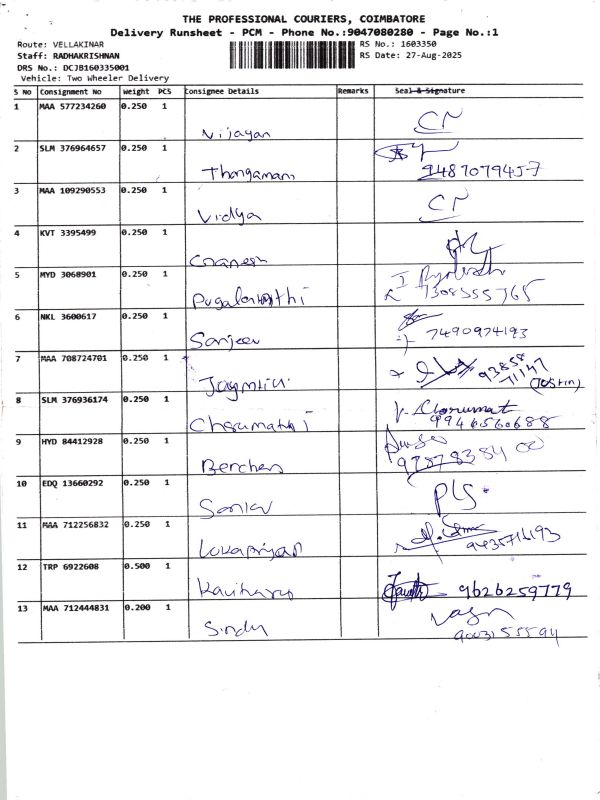 THE PROFESSIONAL COURIERS, COIMBATORE
Delivery Runsheet - PCM - Phone No.:9047080280 - Page No.:1
Route: VELLAKINAR
RS No.: 1603350
Staff: RADHAKRISHNAN
RS Date: 27-Aug-2025
DRS No.: DCJB160335001
Vehicle: Two Wheeler Delivery
S No Consignment No Weight PCS Consignee Details Remarks Seal & Signature
1 MAA 577234260 0.250 1
Vijayan
2 SLM 376964657 0.250 1
Thangamani 9487079457
3 MAA 109290553 0.250 1
Vidya
4 KVT 3395499 0.250 1
Ganesh
5 MYD 3068901 0.250 1
7308355765
6 NKL 3600617 0.250 1
Sanjeev 7490974193
7 MAA 708724701 0.250 1
93858
71147
(Jostin)
8 SLM 376936174 0.250 1
9946560688
9 HYD 84412928 0.250 1
9787838400
10 EDQ 13660292 0.250 1
11 MAA 712256832 0.250 1
9435716193
12 TRP 6922608 0.500 1
9626259779
13 MAA 712444831 0.200 1
Sindu
9003155594